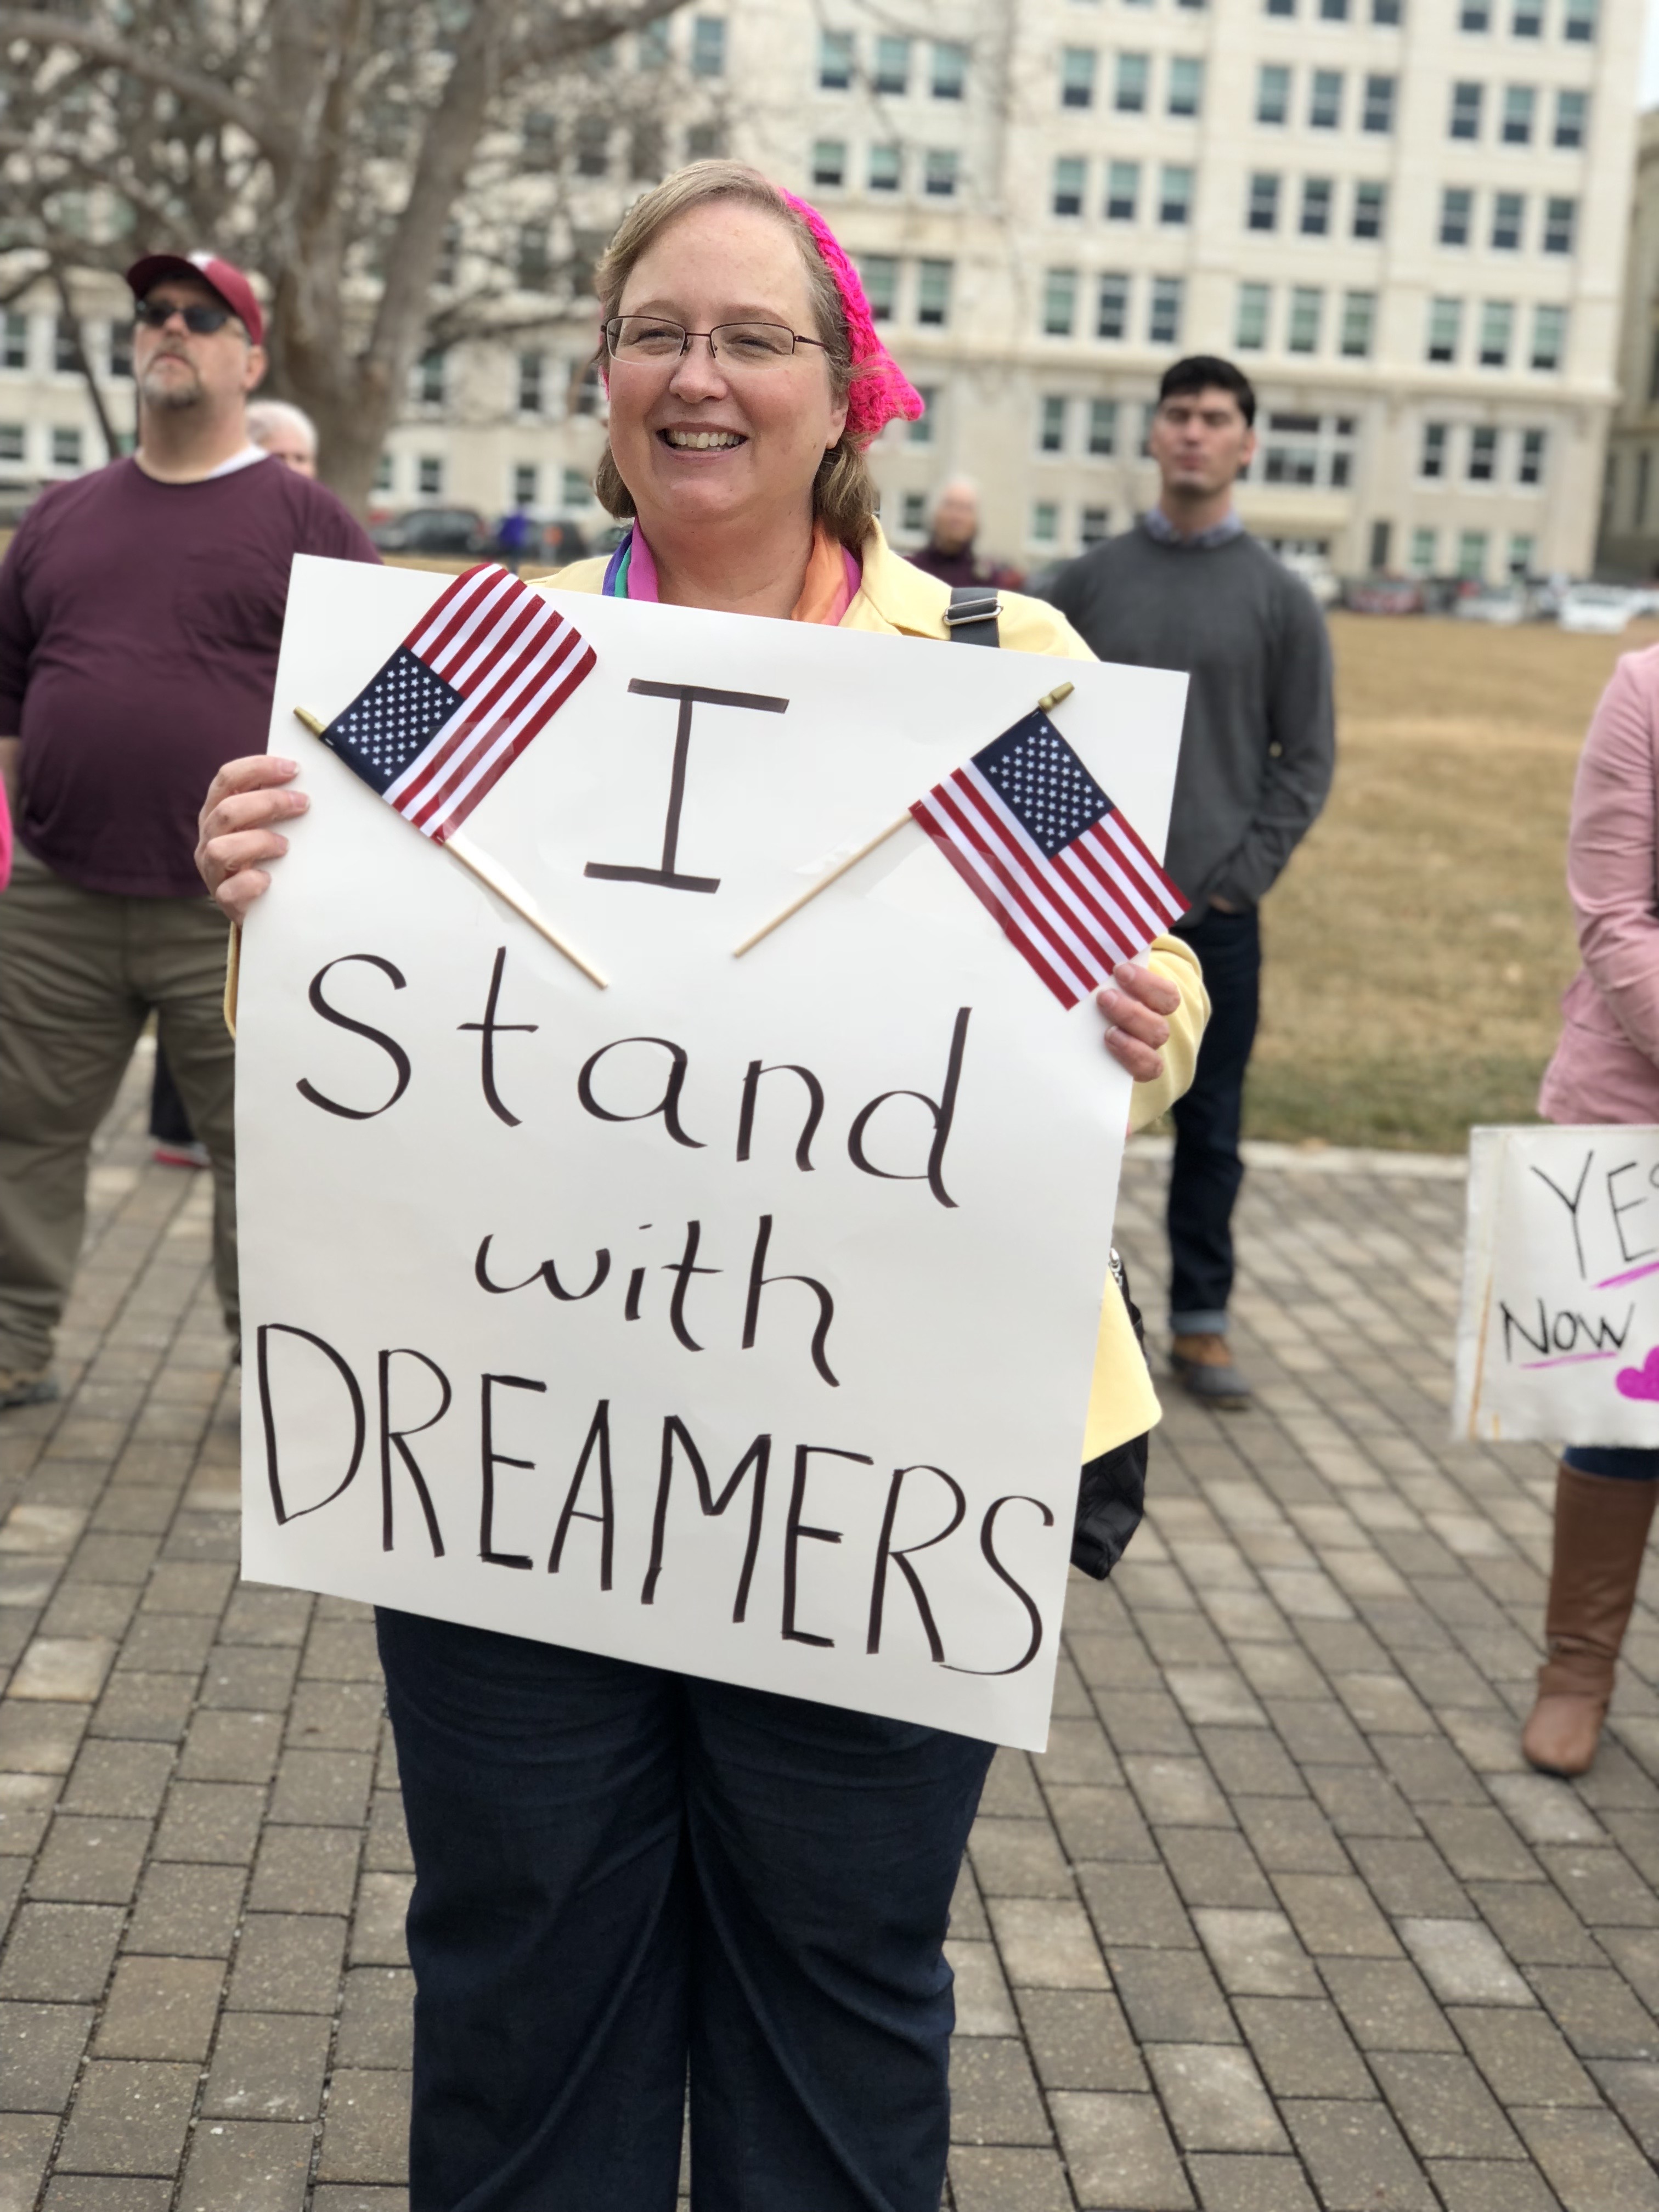 I
Stand
with
DREAMERS
YES
NOW